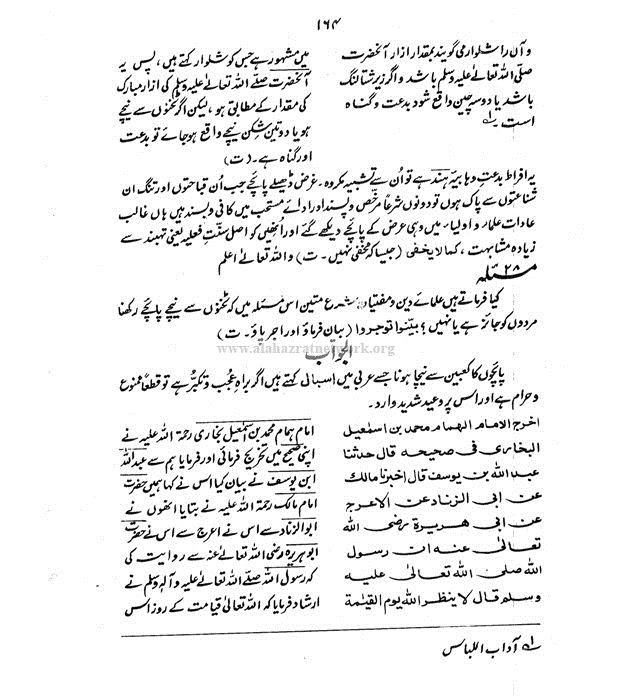 ۱۶۴
و آن را شلوار می گویند بمقدار ازار آنحضرت
صلی اللہ تعالٰی علیہ وسلم باشد و اگر زیر شتالنگ
باشد یا دو سہ چین واقع شود بدعت و گناہ
است ؎۱
میں مشہور ہے جس کو شلوار کہتے ہیں، پس یہ
آنحضرت صلے اللہ تعالٰی علیہ وسلم کی ازار مبارک
کی مقدار کے مطابق ہو، لیکن اگر ٹخنوں سے نیچے
ہو یا دو تین شکن نیچے واقع ہو جائے تو بدعت
اور گناہ ہے۔ (ت)
یہ افراط بدعتِ وہابیہ ہند ہے تو اُن سے تشبیہ مکروہ۔ غرض ڈھیلے پائچے جب اُن قباحتوں اور تنگ ان
شناعتوں سے پاک ہوں تو دونوں شرعاً مرخص و پسند اور ادائے مستحب میں کافی و بسند ہیں ہاں غالب
عادات علماء و اولیاء میں وہی عرض کے پائچے دیکھے گئے اور انھیں کو اصل سنّتِ فعلیہ یعنی تہبند سے
زیادہ مشابہت، کمالا یخفی (جیسا کہ مخفی نہیں۔ ت) واللہ تعالٰی اعلم
مسئلہ ۲۸
کیا فرماتے ہیں علمائے دین و مفتیان شرع متین اس مسئلہ میں کہ ٹخنوں سے نیچے پائچے رکھنا
مردوں کو جائز ہے یا نہیں؟ بیّنوا توجروا (بیان فرماؤ اور اجر پاؤ۔ ت)
www.alahazratnetwork.org
الجواب
پائچوں کا کعبین سے نیچا ہونا جسے عربی میں اسبال کہتے ہیں اگر براہِ عُجب و تکبّر ہے تو قطعاً ممنوع
و حرام ہے اور اس پر وعید شدید وارد۔
اخرج الامام الہمام محمد بن اسمٰعیل
البخاری فی صحیحہ قال حدثنا
عبداللہ بن یوسف قال اخبرنا مالک
عن ابی الزناد عن الاعرج
عن ابی ھریرۃ رضی اللہ
تعالٰی عنہ ان رسول
اللہ صلی اللہ تعالٰی علیہ
وسلم قال لا ینظر اللہ یوم القیٰمۃ
امام ہمام محمد بن اسمٰعیل بخاری رحمۃ اللہ علیہ نے
اپنی صحیح میں تخریج فرمائی اور فرمایا ہم سے عبداللہ
ابن یوسف نے بیان کیا اس نے کہا ہمیں حضرت
امام مالک رحمۃ اللہ علیہ نے بتایا انھوں نے
ابوالزناد سے اس نے اعرج سے اس نے حضرت
ابوہریرہ رضی اللہ تعالٰی عنہ سے روایت کی
کہ رسول اللہ صلے اللہ تعالٰی علیہ و آلہ وسلم نے
ارشاد فرمایا کہ اللہ تعالٰی قیامت کے روز اس
؎۱ آداب اللباس